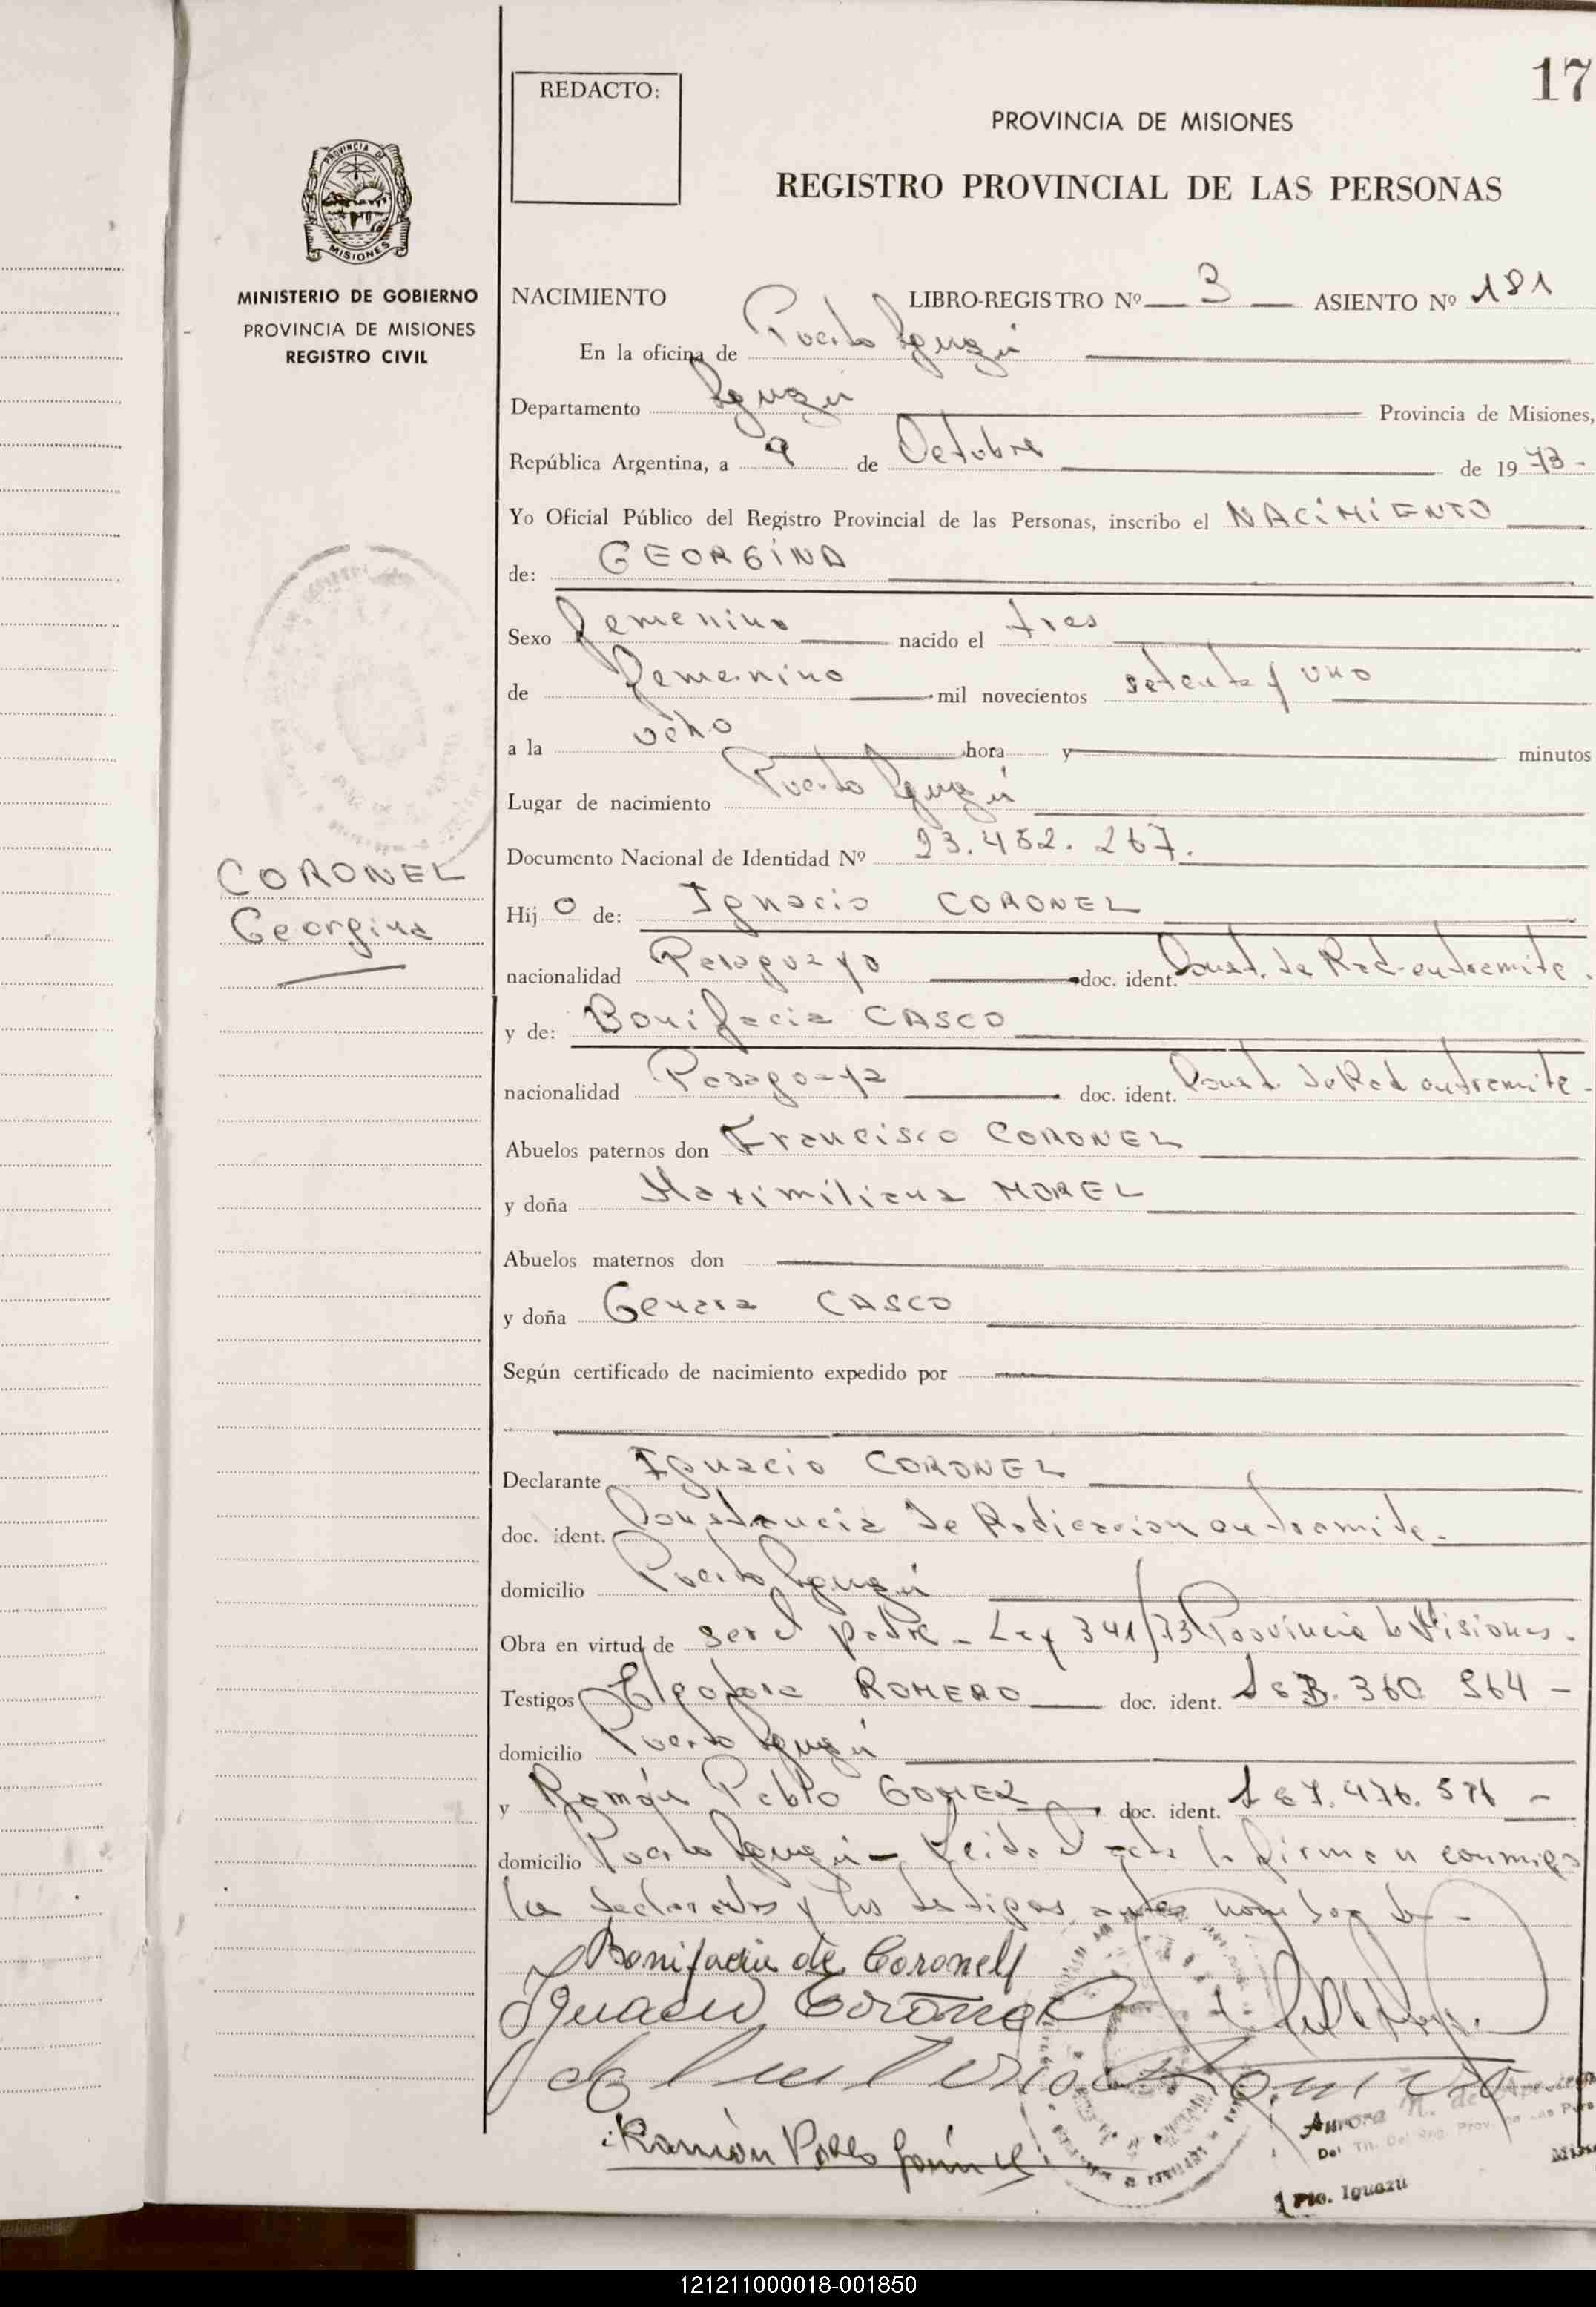 17
REDACTO:
PROVINCIA DE MISIONES
REGISTRO PROVINCIAL DE LAS PERSONAS
PROVINCIA DE
MISIONES
MINISTERIO DE GOBIERNO
PROVINCIA DE MISIONES
REGISTRO CIVIL
NACIMIENTO LIBRO-REGISTRO Nº 3 ASIENTO Nº 181
En la oficina de Puerto Iguazú
Departamento Iguazú Provincia de Misiones,
República Argentina, a 9 de Octubre de 1973-
Yo Oficial Público del Registro Provincial de las Personas, inscribo el NACIMIENTO
de: GEORGINA
Sexo femenino nacido el tres
de femenino mil novecientos setenta y uno
a la ocho hora y minutos
Lugar de nacimiento Puerto Iguazú
Documento Nacional de Identidad Nº 23.452.267.
CORONEL
Georgina
Hijo de: Ignacio CORONEL
nacionalidad Paraguayo doc. ident. Const. de Rad. en tramite.
y de: Bonifacia CASCO
nacionalidad Paraguaya doc. ident. Const. de Rad en tramite-
Abuelos paternos don Francisco CORONEL
y doña Maximiliana MOREL
Abuelos maternos don
y doña Genara CASCO
Según certificado de nacimiento expedido por
Declarante Ignacio CORONEL
doc. ident. Constancia de Radicacion en tramite.
domicilio Puerto Iguazú
Obra en virtud de ser el padre - Ley 341/73 Provincia de Misiones.
Testigos ROMERO doc. ident. 360 964 -
domicilio Puerto Iguazú
y Ramón Pablo GOMEZ doc. ident. 7.476.571 -
domicilio Puerto Iguazú - Leida el acta la firman conmigo
los declarantes y los testigos antes nombrados-
Bonifacia de Coronell
Ignacio Coronel
Ramón Pablo Gómez
Aurora N. de
Del Tit. Del Reg. Prov. de las Pers
Pto. Iguazú
121211000018-001850